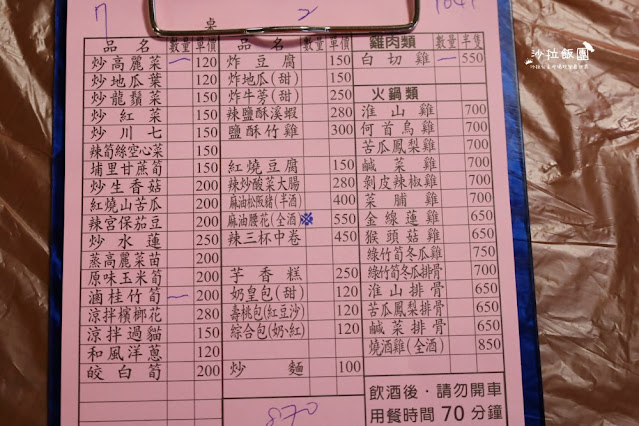 7 桌 2
品名 數量 單價
炒高麗菜 一 120
炒地瓜葉 120
炒龍鬚菜 150
炒紅菜 150
炒川七 150
辣筍絲空心菜 150
埔里甘蔗筍 150
炒生香菇 200
紅燒山苦瓜 200
辣宮保茄豆 200
炒水蓮 250
蒸高麗菜苗 200
原味玉米筍 200
滷桂竹筍 一 200
涼拌檳榔花 280
涼拌過貓 150
和風洋蔥 120
皎白筍 200
品名 數量 單價
炸豆腐 150
炸地瓜(甜) 150
炸牛蒡(甜) 250
辣鹽酥溪蝦 280
鹽酥竹雞 300
紅燒豆腐 150
辣炒酸菜大腸 280
麻油松阪豬(半酒) 400
麻油腰花(全酒)※ 550
辣三杯中卷 450
芋香糕 250
奶皇包(甜) 120
壽桃包(紅豆沙) 120
綜合包(奶、紅) 120
炒麵 100
870
雞肉類 數量 半隻
白切雞 一 550
火鍋類
淮山雞 700
何首烏雞 700
苦瓜鳳梨雞 700
鹹菜雞 700
剝皮辣椒雞 700
菜脯雞 700
金線蓮雞 650
猴頭菇雞 650
綠竹筍冬瓜雞 750
綠竹筍冬瓜排骨 700
淮山排骨 650
苦瓜鳳梨排骨 650
鹹菜排骨 650
燒酒雞(全酒) 850
飲酒後‧請勿開車
用餐時間70分鐘
沙拉飯團